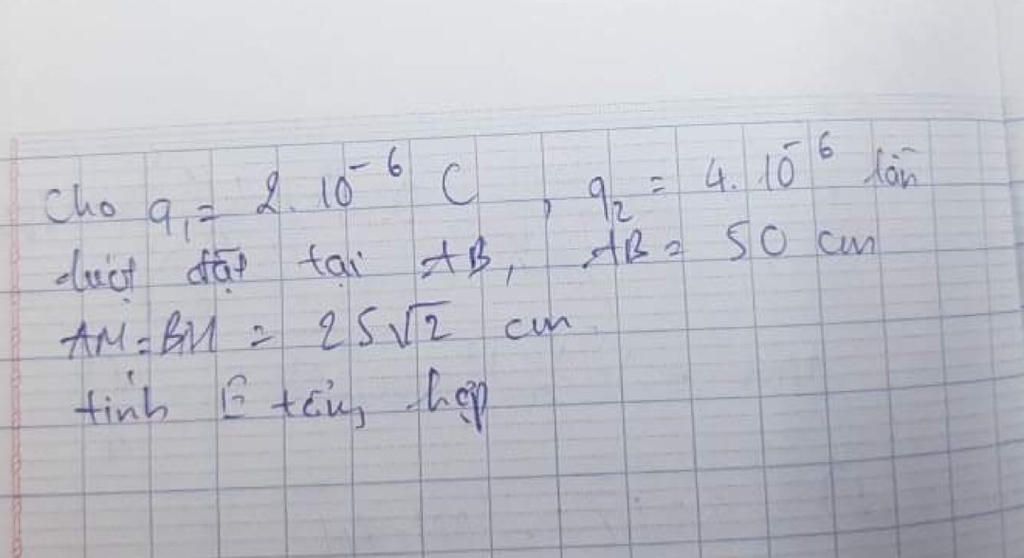 Cho q₁ = 2.10⁻⁶ C, q₂ = 4.10⁻⁶ lần
lượt đặt tại AB, AB = 50 cm
AM = BM = 25√2 cm
tính E tổng hợp